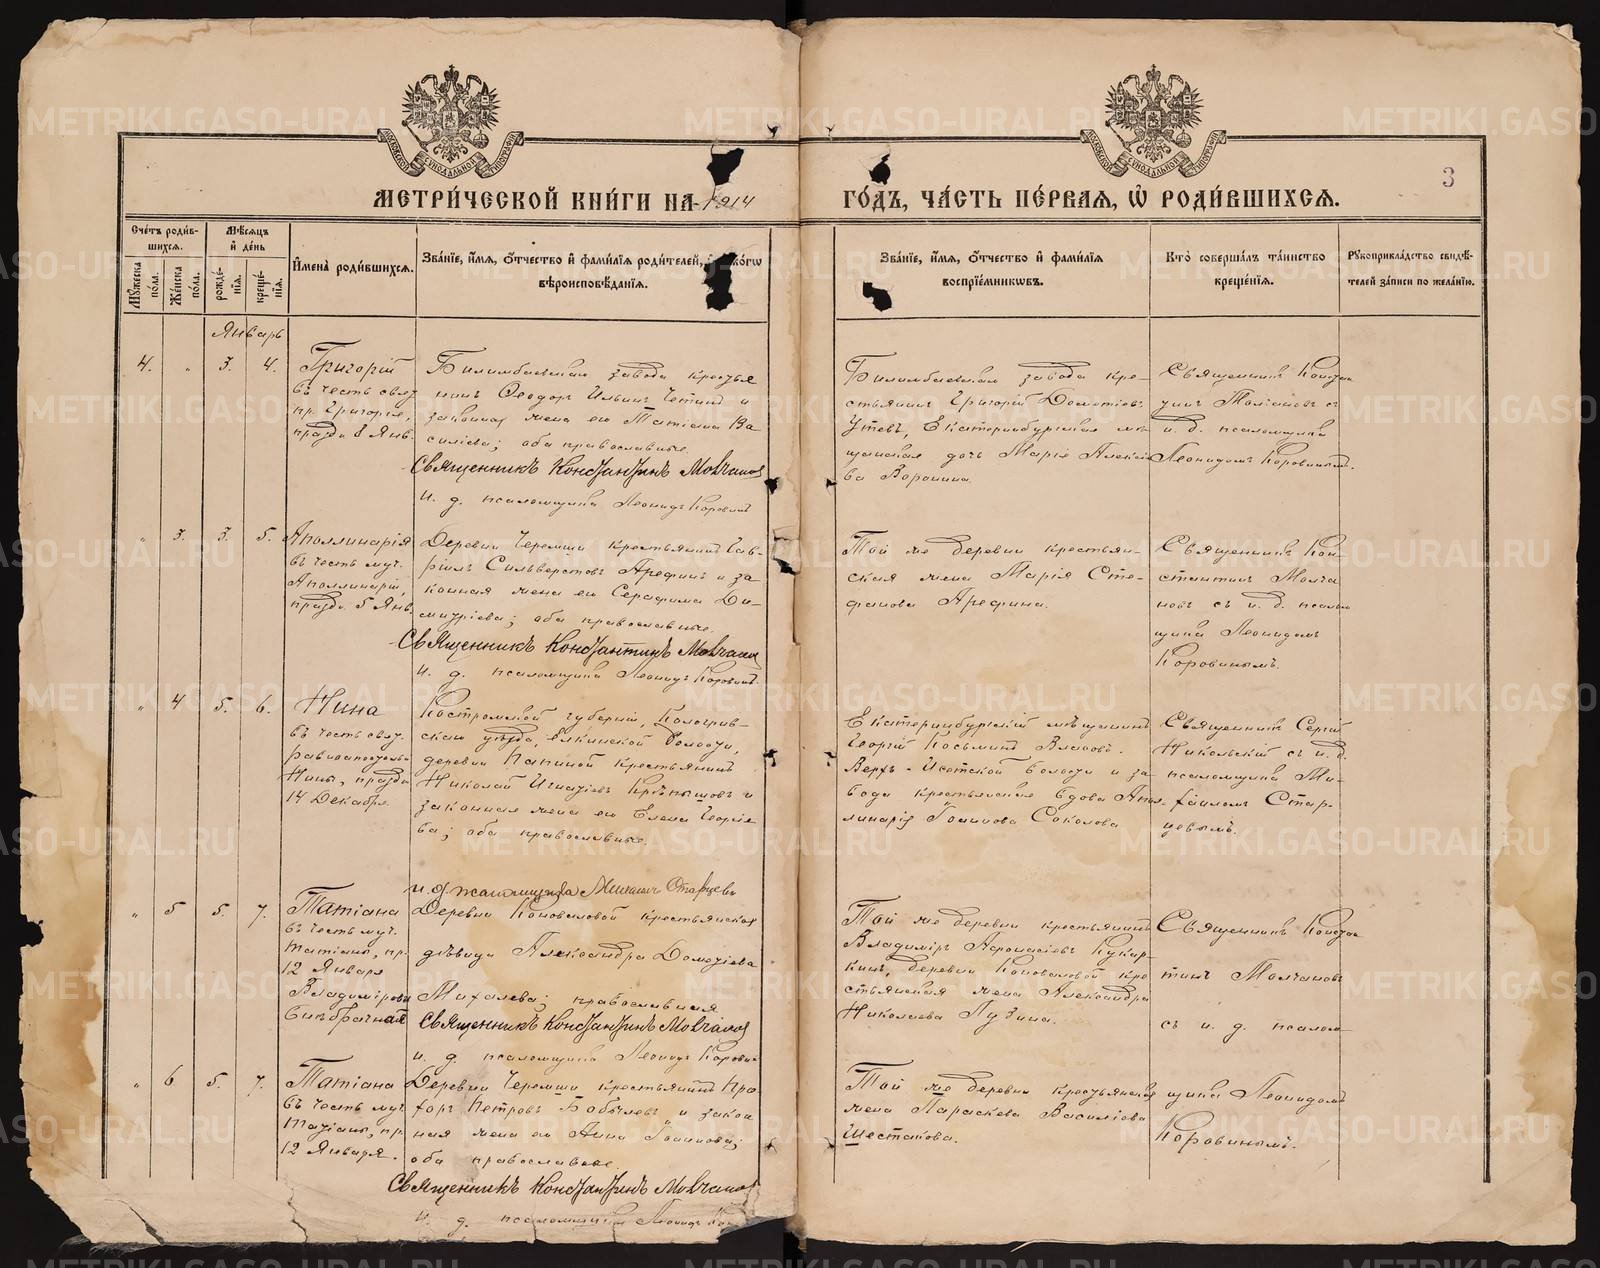 МЕТРИЧЕСКОЙ КНИГИ НА 1914
ГОДЪ, ЧАСТЬ ПЕРВАЯ, Ѡ РОДИВШИХСЯ.
3
Счетъ родив-
шихся.
Мѣсяцъ
и день
Мужеска
пола.
Женска
пола.
рожде-
нія.
креще-
нія.
Имена родившихся.
Званіе, имя, отчество и фамилія родителей,
вѣроисповѣданія.
Званіе, имя, отчество и фамилія
воспріемниковъ.
Кто совершалъ таинство
крещенія.
Рукоприкладство свидѣ-
телей записи по желанію.
Январь
4. „ 3. 4.
Григорій
въ честь
пр. Григорія,
празд. 8 Янв.
Билимбаевскаго завода крестья
нинъ Ѳеодоръ Ильинъ и
законная жена его Татіана Ва
силіева; оба православные.
Священникъ Константинъ Молчанов
И. д. псаломщика Леонидъ Коровинъ
Билимбаевскаго завода кре-
стьянинъ Григорій
Утевъ, Екатеринбургская мѣ
щанская дочь Марія Алексѣ
ва Воронина.
Священникъ Конста
нтинъ Молчановъ съ
и. д. псаломщика
Леонидомъ Коровинымъ.
„ 3. 3. 5.
Аполлинарія
въ честь муч.
Аполлинаріи,
празд. 5 Янв.
Деревни Черемши крестьянинъ Гав-
ріилъ Сильверстовъ Арефинъ и за
конная жена его Серафима Ди-
митріева; оба православные.
Священникъ Константинъ Молчанов
И. д. псаломщика Леонидъ Коровинъ.
Той же деревни крестьян-
ская жена Марія Сте-
фанова Арефина.
Священникъ Кон-
стантинъ Молча
новъ съ и. д. псалом
щика Леонидомъ
Коровинымъ.
„ 4 5. 6.
Нина
въ честь
равноапостольн
Нины, празд.
14 Декабря.
Костромской губерніи, Кологрив-
скаго уѣзда, волости,
деревни крестьянинъ
Николай Игнатіевъ и
законная жена его Елена Георгіе
ва; оба православные.
и. д. псаломщика Михаилъ Старцевъ
Екатеринбургскій мѣщанинъ
Георгій Косьминъ Власовъ.
Верхъ-Исетской волости и за-
вода крестьянская вдова Апол-
линарія Іоаннова Соколова
Священникъ Сергій
Никольскій съ и. д.
псаломщика Ми-
хаиломъ Стар-
цевымъ.
„ 5 5. 7.
Татіана
въ честь муч.
Татіаны, пр.
12 Января
Владимірова
внѣбрачная
Деревни Коноваловой крестьянская
дѣвица Александра Дометіева
Михалева; православная
Священникъ Константинъ Молчанов
и. д. псаломщика Леонидъ Корови
Той же деревни крестьянинъ
Владиміръ Афонасіевъ
деревни Коноваловой кре
стьянская жена Александра
Николаева Пузина.
Священникъ Конста
нтинъ Молчановъ
съ и. д. псалом-
„ 6 5. 7.
Татіана
въ честь муч
Татіаны, пр.
12 Января.
Деревни Черемши крестьянинъ Про
хоръ Петровъ Бобылевъ и закон
ная жена его Анна Іоаннова;
оба православные.
Священникъ Константинъ Молчанов
И. д. псаломщика Леонидъ Ко
Той же деревни крестьянская
жена Параскева Василіева
Шестакова.
щика Леонидомъ
Коровинымъ.
METRIKI.GASO-URAL.RU